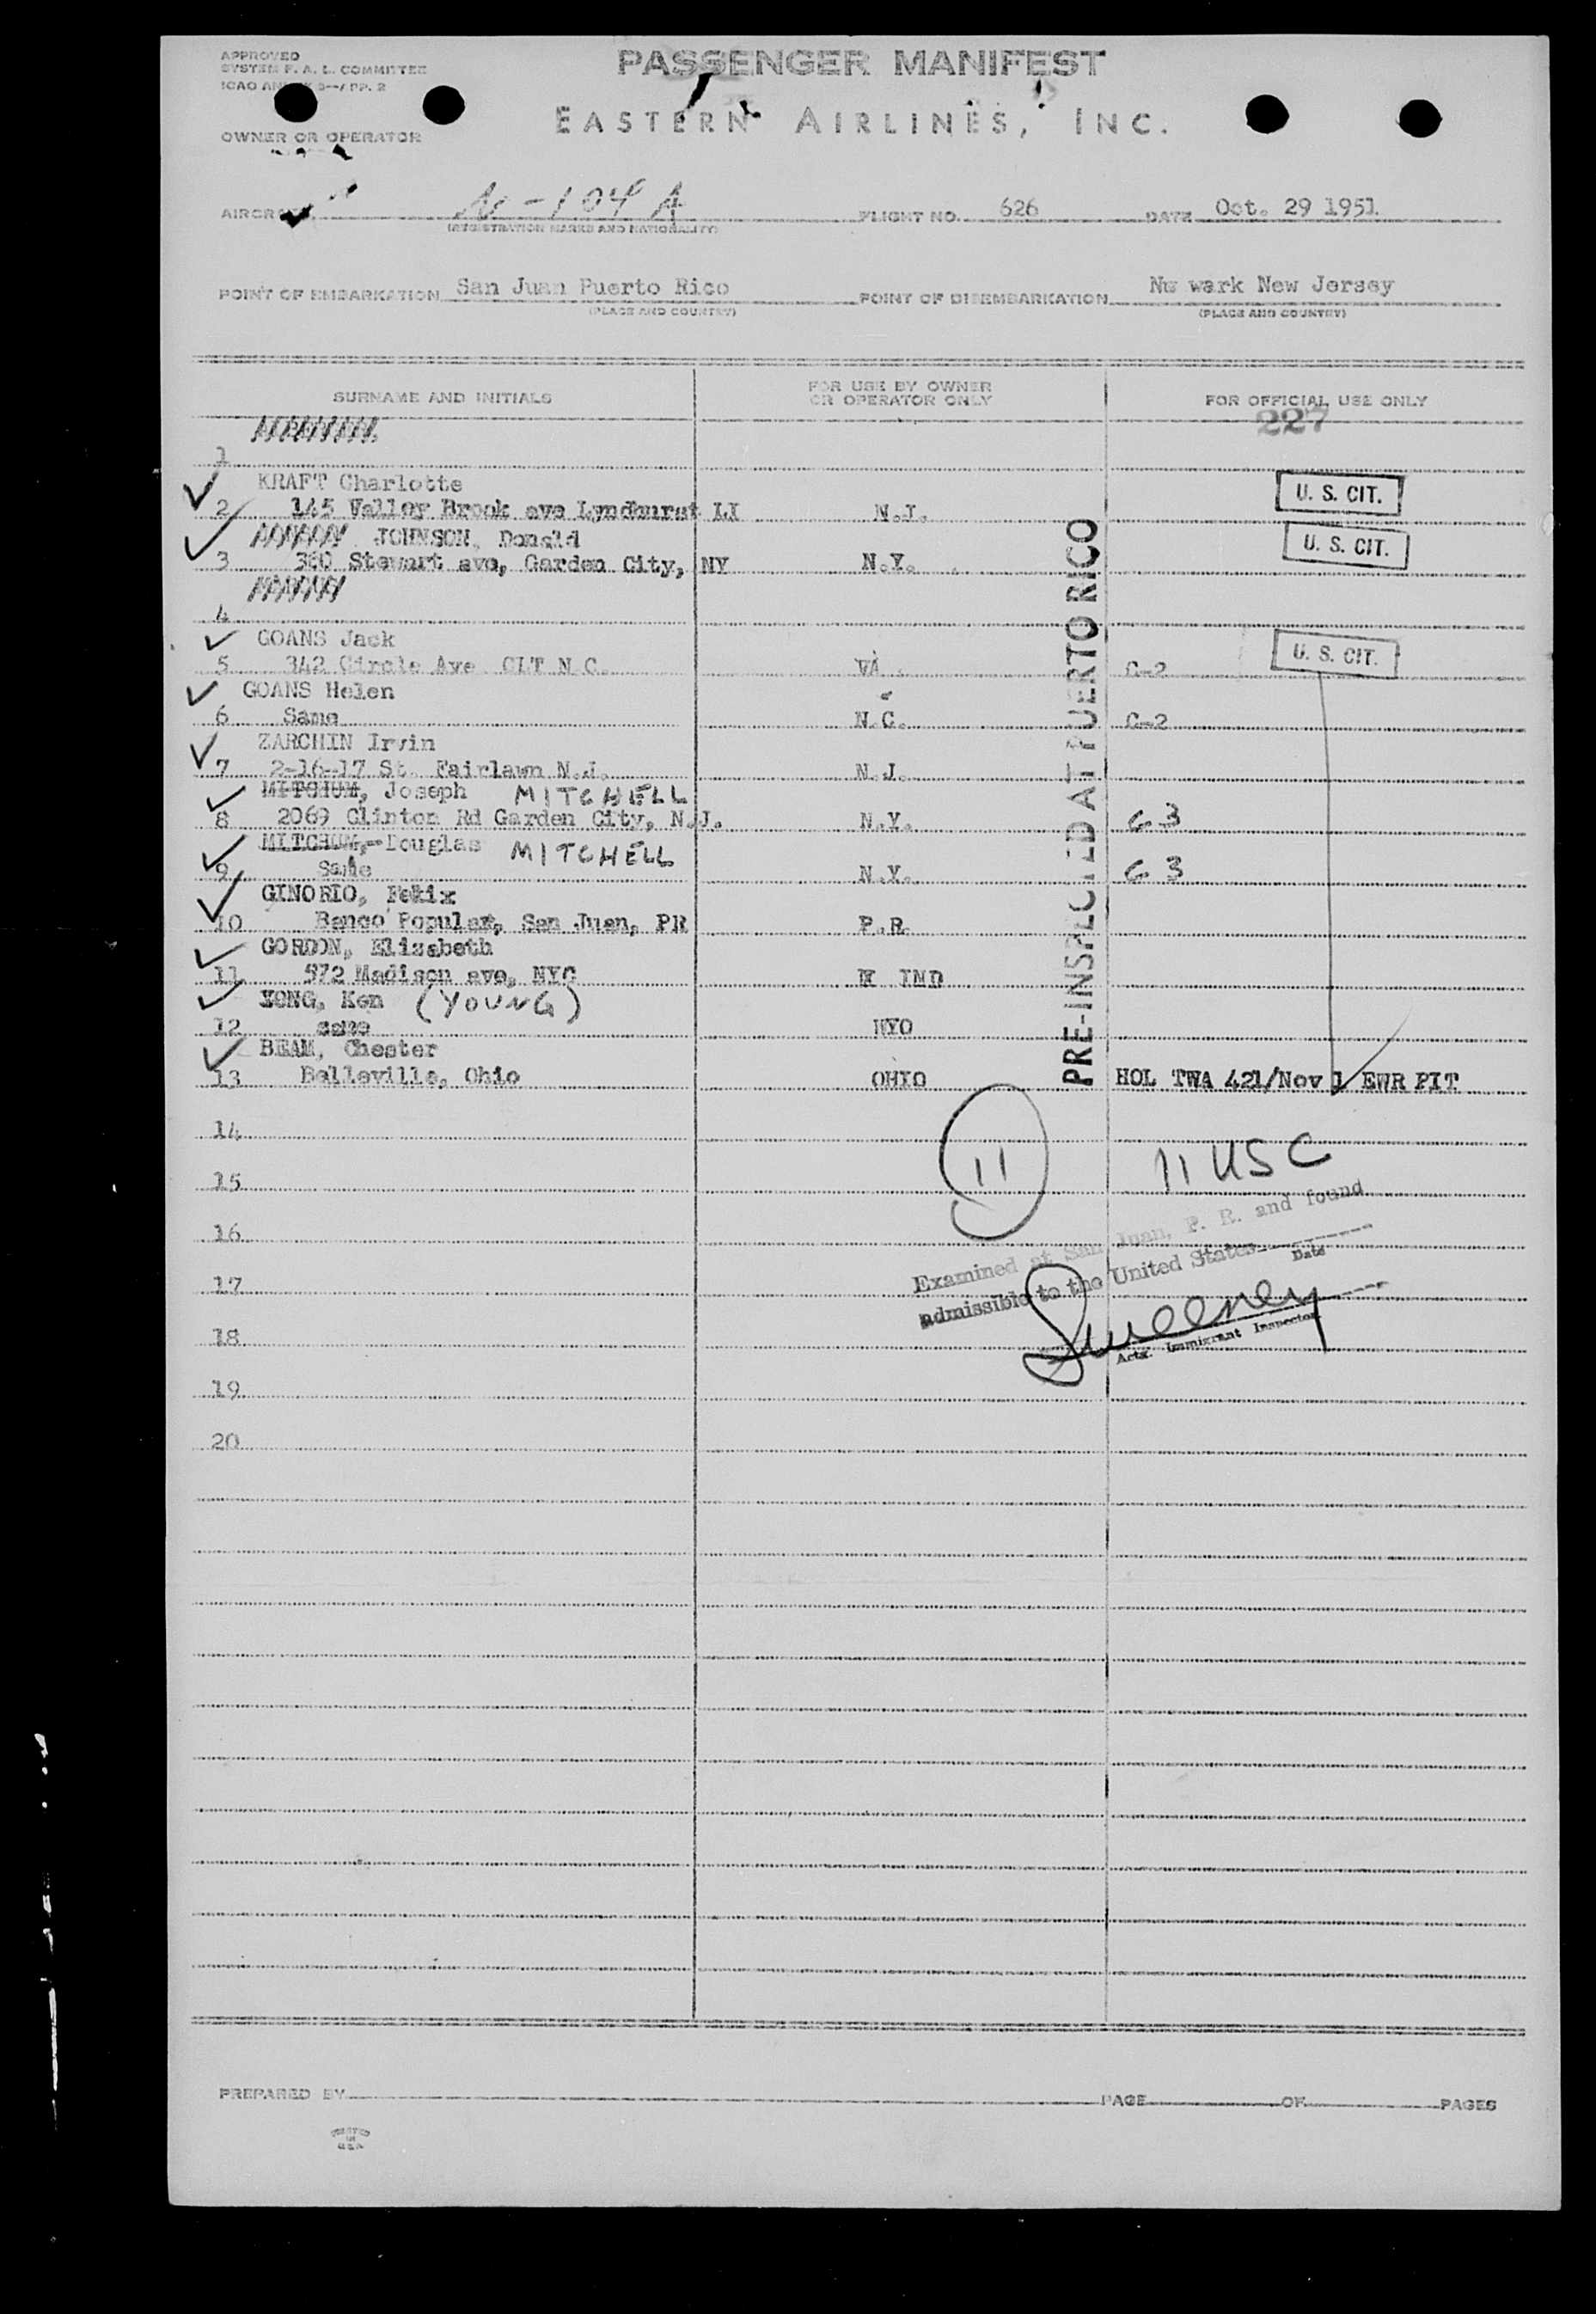 APPROVED
SYSTEM F. A. L. COMMITTEE
ICAO
PASSENGER MANIFEST
EASTERN AIRLINES, INC.
OWNER OR OPERATOR
AIRCRAFT N-104 A FLIGHT NO. 626 DATE Oct. 29 1951
(REGISTRATION MARKS AND NATIONALITY)
POINT OF EMBARKATION San Juan Puerto Rico POINT OF DISEMBARKATION Ne wark New Jersey
(PLACE AND COUNTRY) (PLACE AND COUNTRY)
SURNAME AND INITIALS FOR USE BY OWNER OR OPERATOR ONLY FOR OFFICIAL USE ONLY
227
1
KRAFT Charlotte U. S. CIT.
2 145 Valley Brook ave Lyndhurst LI N.J.
JOHNSON, Donald U. S. CIT.
3 Stewart ave, Garden City, NY N.Y.
4
GOANS Jack U. S. CIT.
5 342 Circle Ave CLT N C. VA. C-2
GOANS Helen
6 Same N.C. C-2
ZARCHIN Irvin
7 2-16-17 St. Fairlawn N.J. N.J.
MITCHUM, Joseph MITCHELL
8 2069 Clinton Rd Garden City, N.J. N.Y. G 3
MITCHUM, Douglas MITCHELL
9 Same N.Y. G 3
GINORIO, Felix
10 Banco Popular, San Juan, PR P.R.
GORDON, Elizabeth
11 572 Madison ave, NYC IND
YONG, Ken (YOUNG)
12 same NYC
BEAM, Chester
13 Belleville, Ohio OHIO HOL TWA 421/Nov 1 EWR PIT
PRE-INSPECTED AT PUERTO RICO
14
15 11 11 USC
16
17
18
19
20
Examined at San Juan, P. R. and found
admissible to the United States
Date
Sweeney
Actg. Immigrant Inspector
PREPARED BY PAGE OF PAGES
PRINTED
IN
U.S.A.